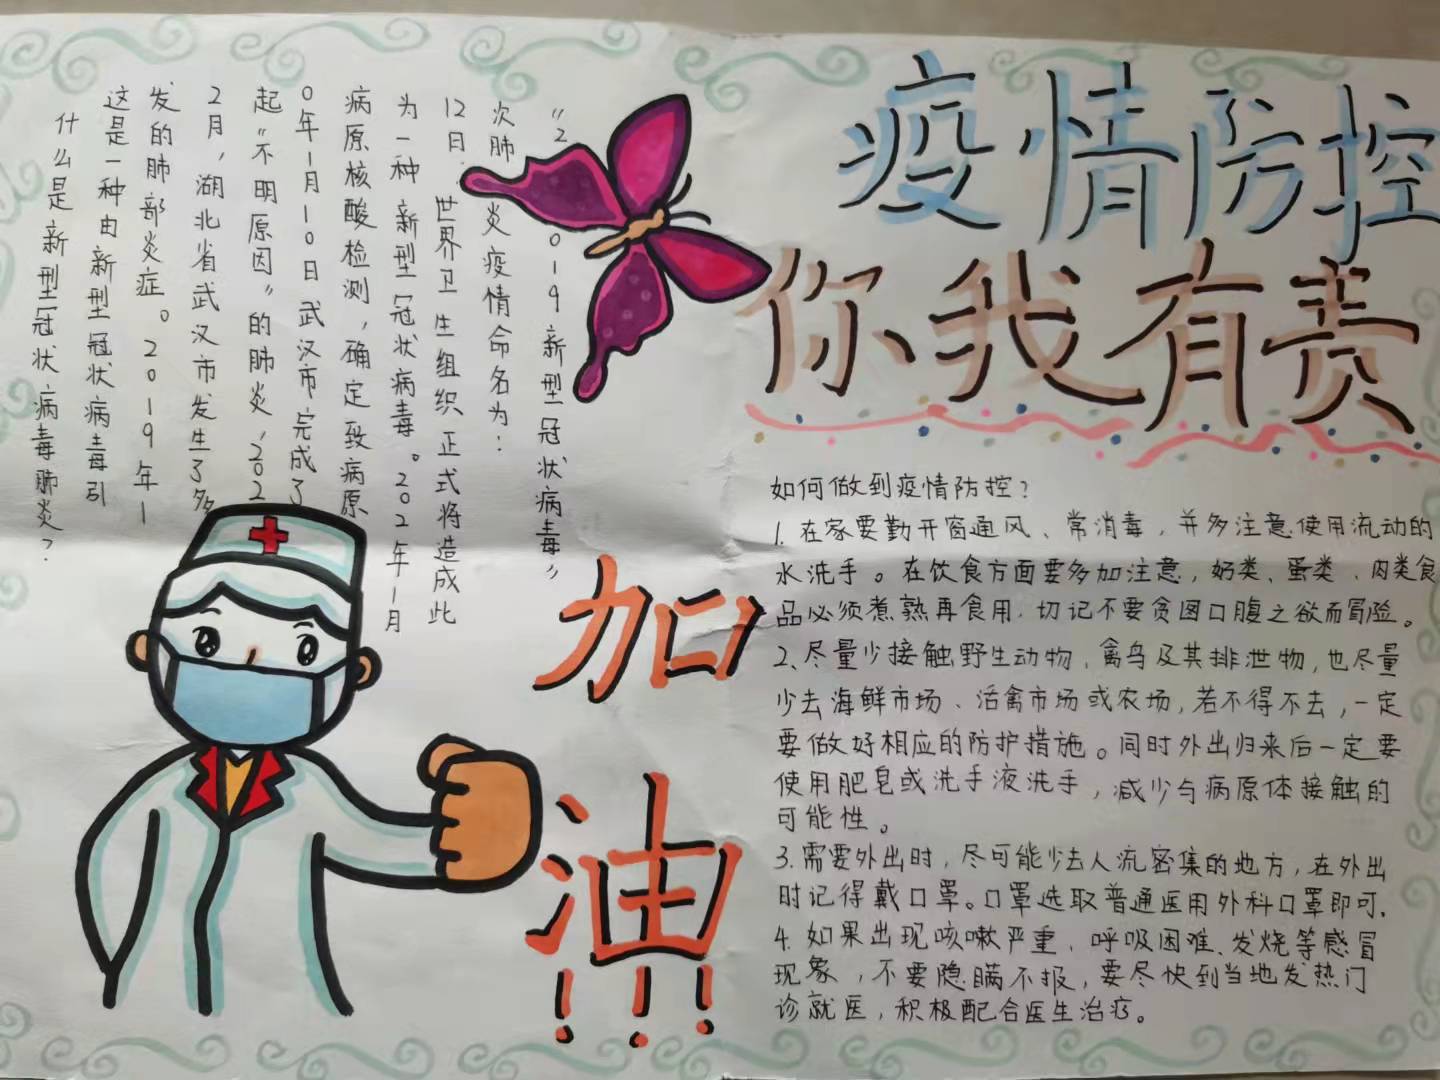 疫情防控
你我有责
什么是新型冠状病毒肺炎？
这是一种由新型冠状病毒引
发的肺部炎症。2019年1
2月，湖北省武汉市发生了多
起“不明原因”的肺炎，202
0年1月10日武汉市完成了
病原核酸检测，确定致病原
为一种新型冠状病毒。202年1月
12日，世界卫生组织正式将造成此
次肺炎疫情命名为：
“2019新型冠状病毒”
加
油
!!!
如何做到疫情防控？
1.在家要勤开窗通风、常消毒，并多注意使用流动的
水洗手。在饮食方面要多加注意，奶类、蛋类、肉类食
品必须煮熟再食用，切记不要贪图口腹之欲而冒险。
2、尽量少接触野生动物，禽鸟及其排泄物，也尽量
少去海鲜市场、活禽市场或农场，若不得不去，一定
要做好相应的防护措施。同时外出归来后一定要
使用肥皂或洗手液洗手，减少与病原体接触的
可能性。
3.需要外出时，尽可能少去人流密集的地方，在外出
时记得戴口罩。口罩选取普通医用外科口罩即可.
4.如果出现咳嗽严重，呼吸困难、发烧等感冒
现象，不要隐瞒不报，要尽快到当地发热门
诊就医，积极配合医生治疗。